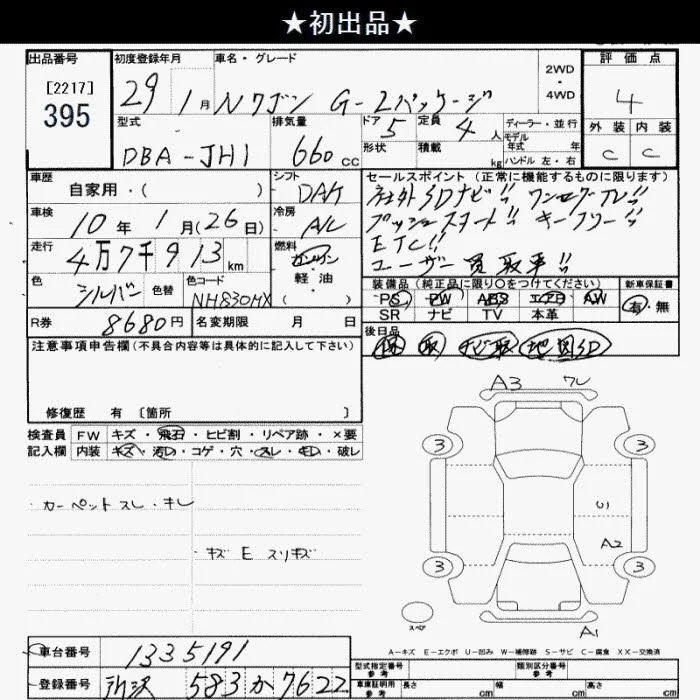 ★初出品★
出品番号
[2217]
395
初度登録年月
29 1月
車名・グレード
Nワゴン G-2パッケージ
2WD
・
4WD
評価点
4
外装 内装
C C
型式
DBA-JH1
排気量
660cc
ドア 5
形状
定員 4人
積載 kg
ディーラー・並行
モデル年式 年
ハンドル 左・右
車歴
自家用・( )
シフト
DAT
セールスポイント(正常に機能するものに限ります)
社外SDナビ!! ワンセグTV!!
プッシュスタート!! キーフリー!!
ETC!!
ユーザー買取車!!
車検
10年1月(26日)
冷房
A/C
走行
4万7千913km
燃料
ガソリン
軽油
( )
色
シルバー
色替
色コード
NH830MX
装備品(純正品に限り○をつけてください)
PS PW ABS エアB AW
SR ナビ TV 本革
新車保証書
有・無
R券
8680円
名変期限 月 日
後日品
保 取 ナビ取 地図SD
注意事項申告欄(不具合内容等は具体的に記入して下さい)
修復歴 有 〔箇所 〕
検査員記入欄
FW キズ・飛石・ヒビ割・リペア跡・×要
内装 キズ・汚れ・コゲ・穴・スレ・キレ・破レ
カーペットスレ・キレ
キズ E スリキズ
A3 ワレ
3 3
U1
A2
3 3
スペア
A1
A-キズ E-エクボ U-凹み W-補修跡 S-サビ C-腐食 XX-交換済
車台番号
1335191
登録番号
所沢 583 か 7622
型式指定番号
参考
類別区分番号
参考
車庫証明用
参考
長さ cm
幅 cm
高さ cm